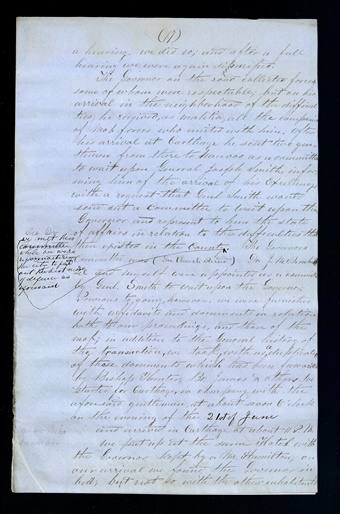 (4)
a hearing, we did so, and after a full
hearing we were again dismissed.
The Governor on the road collected forces,
some of whom were respectable, but on his
arrival in the neighborhood of the difficul-
ties, he received, as militia, all the companies
of mob forces who united with him. After
his arrival at Carthage he sent two gen-
tlemen from there to Nauvoo as a committee
to wait upon General Joseph Smith, infor-
ming him of the arrival of his Excellency
with a request that Genl. Smith would
send out a committee to wait upon the
Governor and represent to him the state
of affairs in relation to the difficulties that
then existed in the County. The Governor's
committee
we met this
committee
while we were
reconnoitering
the city to find
out the best
of defence as
Dr. J. M.
and myself were appointed as a committee
by Genl. Smith to wait upon the Governor.
Previous to going however, we were furnished
with affidavits and documents in relation
both to our proceedings, and those of the
mob; in addition to the General history of
the transaction, we took with us a duplicate
of those documents which had been forwarded
by Bishop Hunter, Br. James &c.
started for Carthage, in company with the
aforesaid gentlemen at about 7 o'clock
on the evening of the 21st of June
and arrived in Carthage at about 11 P.M.
we put up at the same Hotel with
the Governor kept by a Mr. Hamilton, on
our arrival we found the Governor in
bed; but not so with the other inhabitants